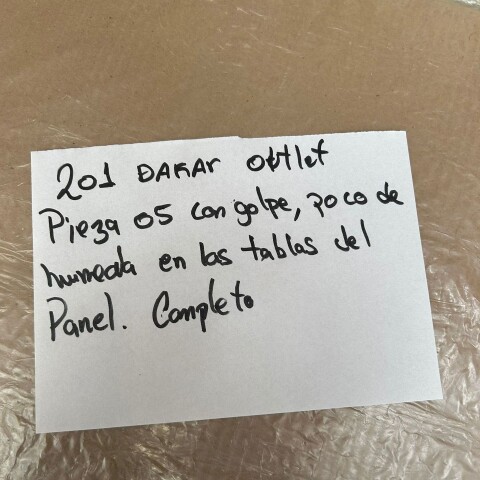 201 DAKAR Outlet
Pieza 05 con golpe, poco de
humeda en las tablas del
Panel. Completo